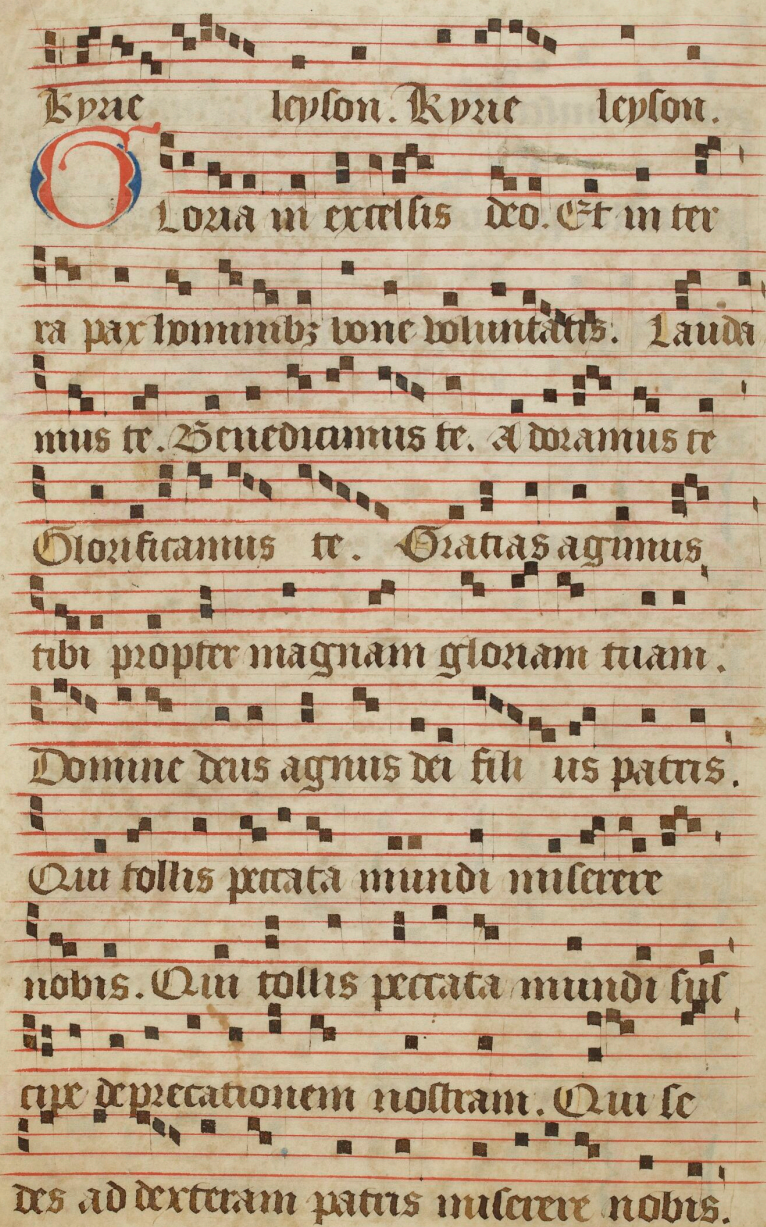 Kyrie leyson. Kyrie leyson.
Gloria in excelsis deo. Et in ter
ra pax hominibꝫ bone voluntatis. Lauda
mus te. Benedicimus te. Adoramus te
Glorificamus te. Gratias agimus
tibi propter magnam gloriam tuam.
Domine deus agnus dei fili us patris.
Qui tollis peccata mundi miserere
nobis. Qui tollis peccata mundi sus
cipe deprecationem nostram. Qui se
des ad dexteram patris miserere nobis.